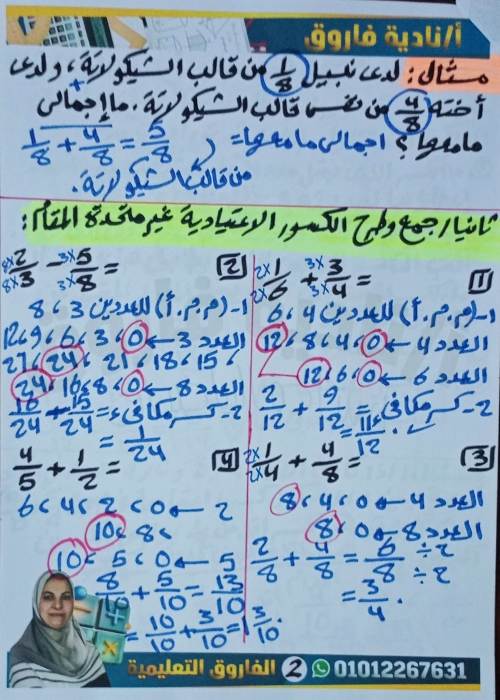 أ/نادية فاروق
مثال: لدى نبيل 1/8 من قالب الشيكولاتة، ولدى
أخته 4/8 من نفس قالب الشيكولاتة. ما إجمالى
ما معهما؟ اجمالى ما معهما = 1/8 + 4/8 = 5/8
من قالب الشيكولاتة.
ثانيا/ جمع وطرح الكسور الاعتيادية غير متحدة المقام:
1) 2×1/2×6 + 3×3/3×4 =
1- (م.م.أ) للعددين 4، 6
العدد 4 ← 0، 4، 8، 12
العدد 6 ← 0، 6، 12
2- كسر مكافئ = 2/12 + 9/12
= 11/12.
2) 8×2/8×3 - 3×5/3×8 =
1- (م.م.أ) للعددين 3، 8
العدد 3 ← 0، 3، 6، 9، 12
15، 18، 21، 24، 27
العدد 8 ← 0، 8، 16، 24
2- كسر مكافئ = 16/24 - 15/24
= 1/24
3) 2×1/2×4 + 4/8 =
العدد 4 ← 0، 4، 8
العدد 8 ← 0، 8
2/8 + 4/8 = 6/8 ÷2/÷2
= 3/4.
4) 4/5 + 1/2 =
2 ← 0، 2، 4، 6
، 8، 10
5 ← 0، 5، 10
8/10 + 5/10 = 13/10
= 10/10 + 3/10 = 1 3/10.
01012267631 2 الفاروق التعليمية